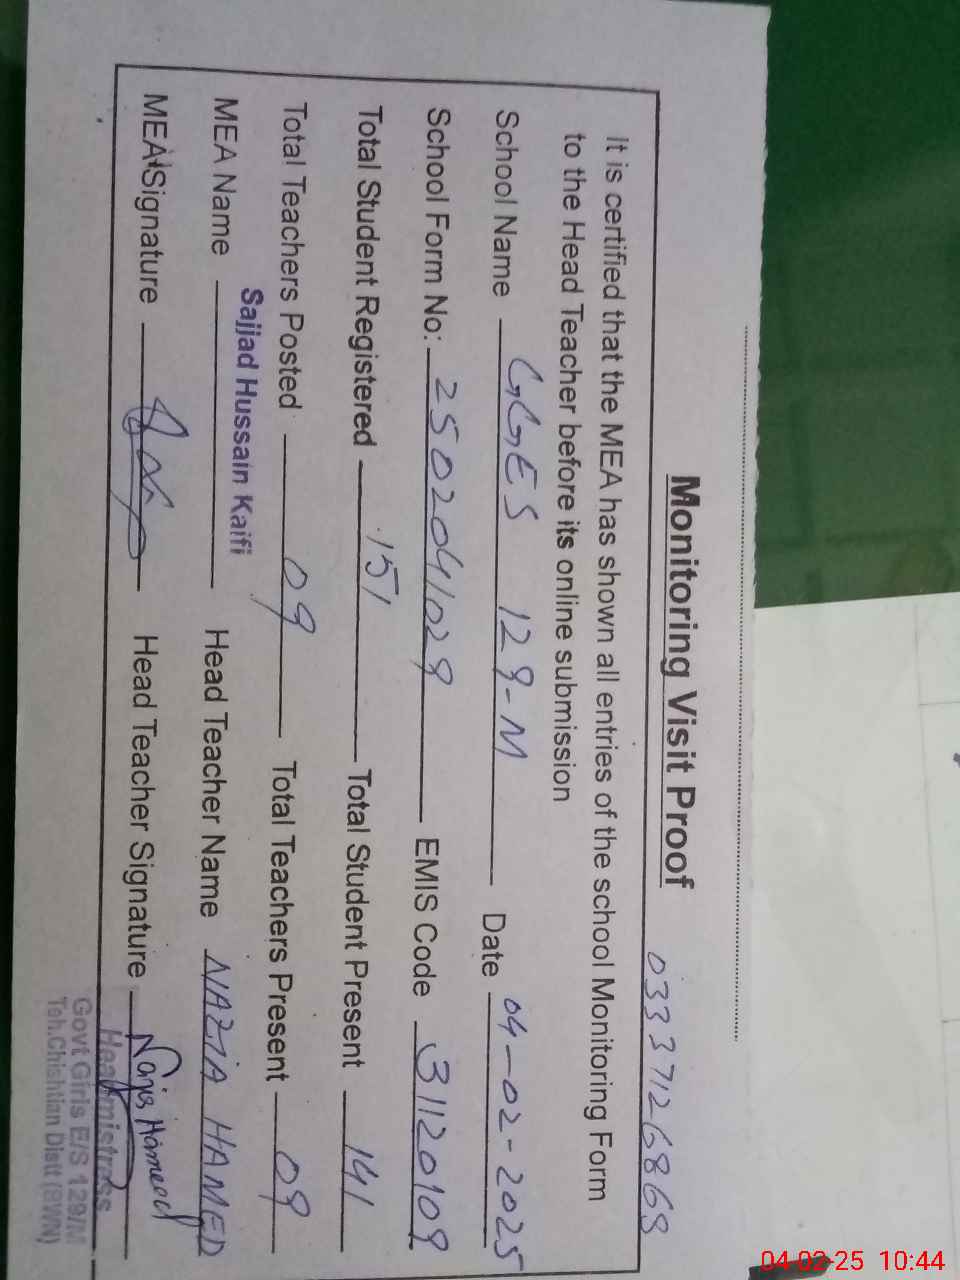 Monitoring Visit Proof
03337126868
It is certified that the MEA has shown all entries of the school Monitoring Form
to the Head Teacher before its online submission
School Name GGES 129-M Date 04-02-2025
School Form No: 2502041029 EMIS Code 31120109
Total Student Registered 151 Total Student Present 141
Total Teachers Posted 09 Total Teachers Present 09
MEA Name Sajjad Hussain Kaifi Head Teacher Name NAZIA HAMED
MEA Signature Head Teacher Signature Nazia Hameed
Headmistress
Govt Girls E/S 129/M
Teh.Chishtian Distt (BWN)
04-02-25 10:44